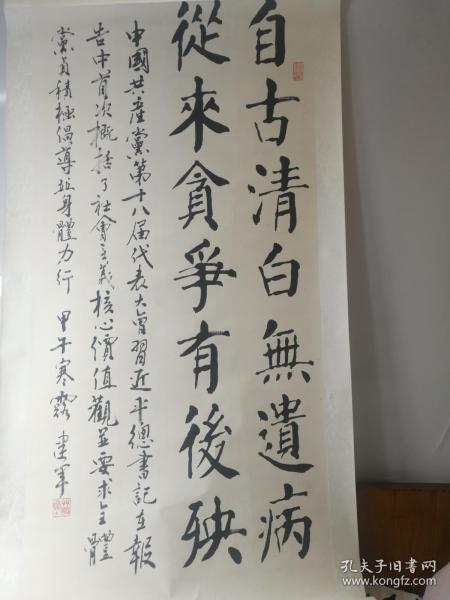 自古清白無遺病
從來貪爭有後殃
中國共產黨第十八届代表大會習近平總書記在報
告中首次概括了社會主義核心價值觀並要求全體
黨員積極倡導並身體力行 甲午寒露 建军
孔夫子旧书网
www.kongfz.com